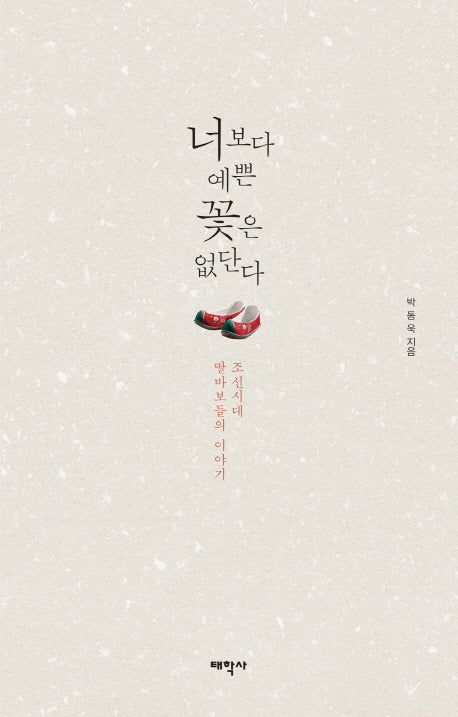 너보다
예쁜
꽃은
없단다
조선시대
딸바보들의 이야기
박동욱 지음
태학사